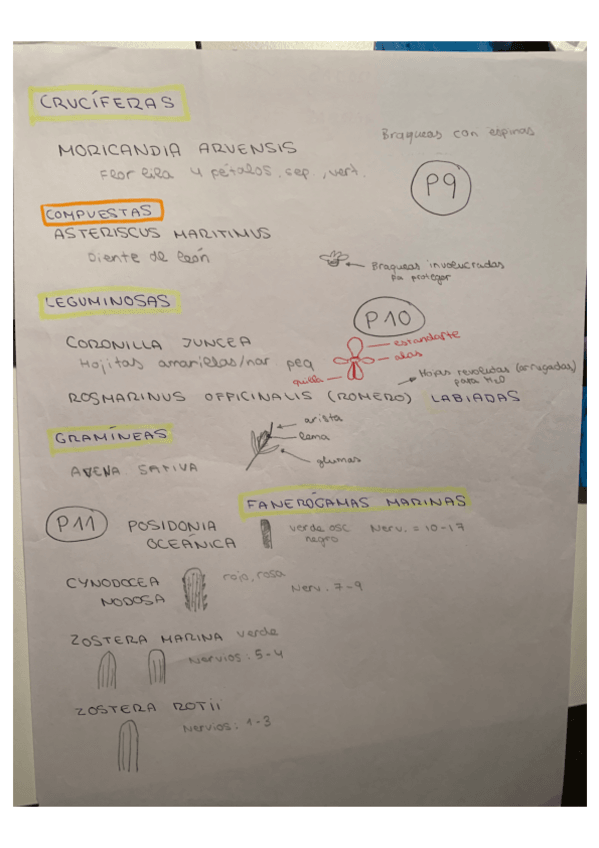 CRUCÍFERAS
Braqueas con espinas
MORICANDIA ARVENSIS
Flor lila 4 pétalos, sep., vert.
P9
COMPUESTAS
ASTERISCUS MARITIMUS
Diente de león
Braqueas involucradas
pa proteger
LEGUMINOSAS
P10
CORONILLA JUNCEA
estandarte
Hojitas amarillas/nar peq
alas
quilla
Hojas revolutas (arrugadas)
para H2O
ROSMARINUS OFFICINALIS (ROMERO) LABIADAS
arista
GRAMÍNEAS
lema
glumas
AVENA SATIVA
FANERÓGAMAS MARINAS
P11
POSIDONIA
OCEÁNICA
verde osc
negro
Nerv. = 10-17
CYNODOCEA
NODOSA
rojo, rosa
Nerv. 7-9
ZOSTERA MARINA verde
Nervios: 5-4
ZOSTERA ROTII
Nervios: 1-3